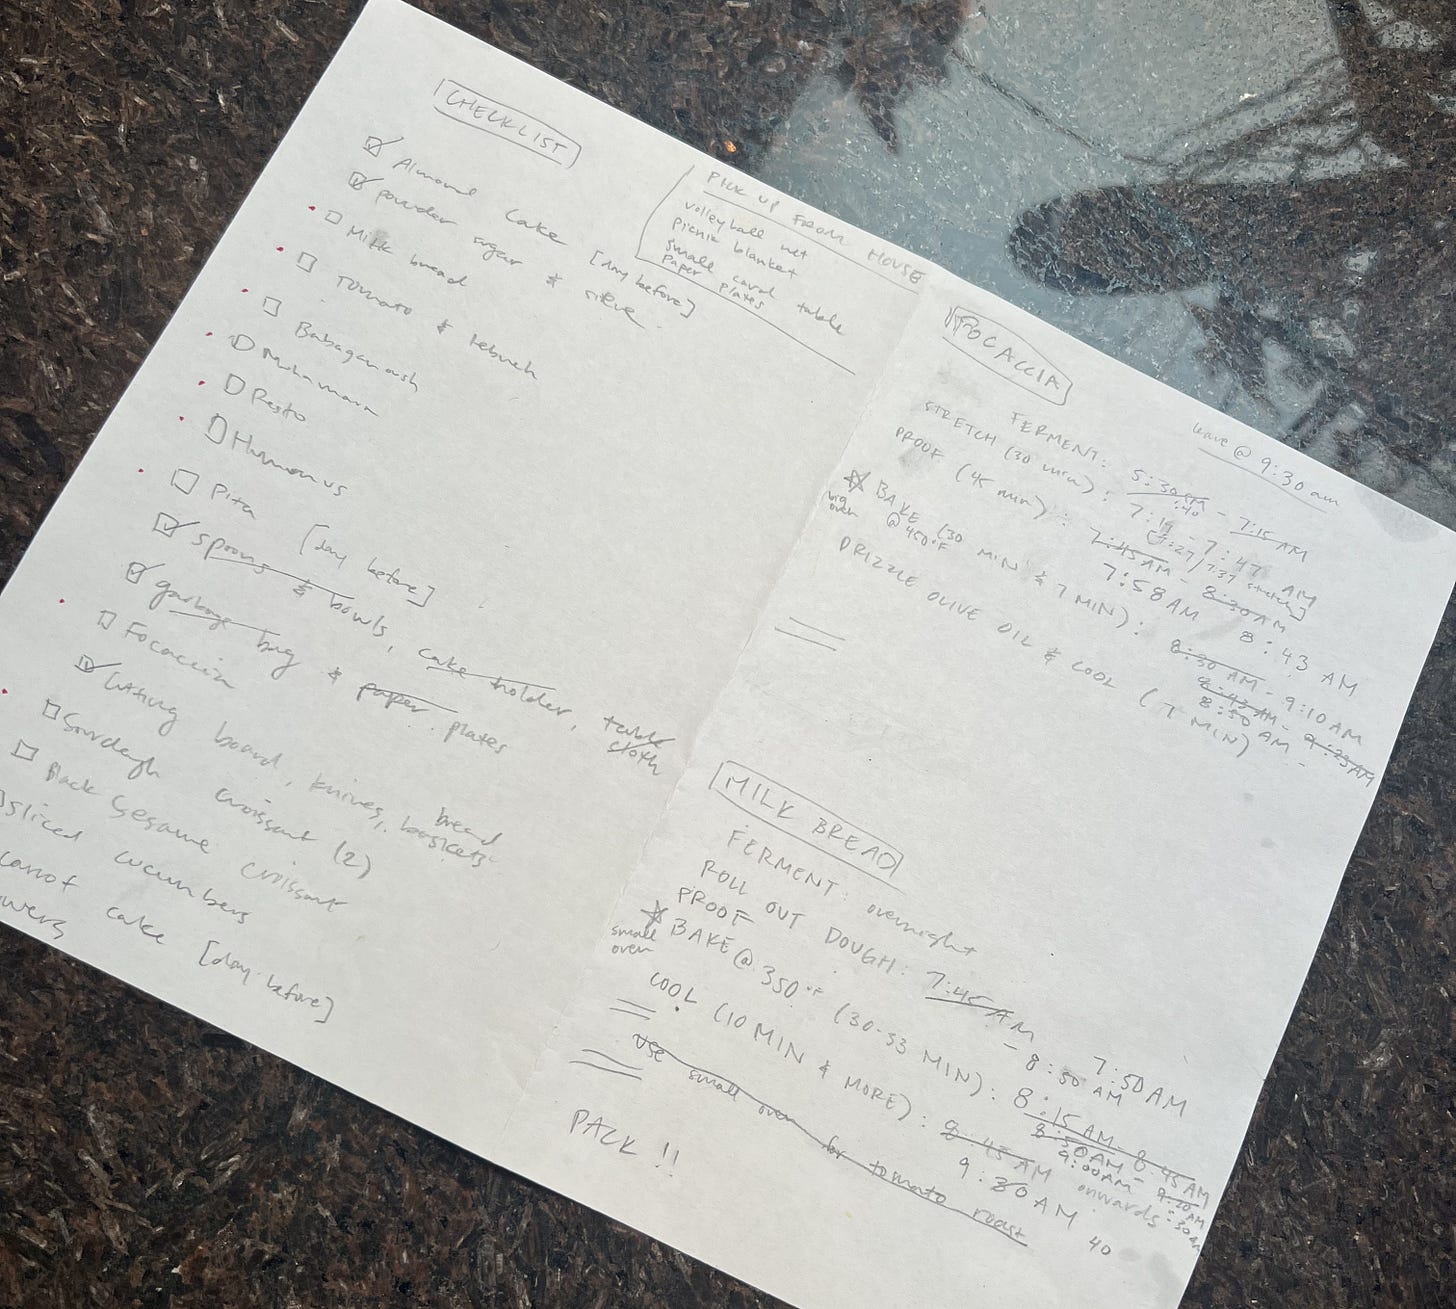 CHECKLIST
Almond cake [day before]
powder sugar & sieve
Milk bread
Tomato & labneh
Babaganoush
Muhamara
Pesto
Hummus
Pita [day before]
spoons & bowls, cake holder, table cloth
garbage bag & paper plates
Focaccia
cutting board, knives, bread baskets
Sourdough croissant (2)
Black sesame croissant
sliced cucumbers
carrot cake [day before]
PICK UP FROM HOUSE
volleyball net
picnic blanket
small card table
paper plates
FOCACCIA
leave @ 9:30 am
FERMENT: 5:30AM - 7:15 AM
:40
STRETCH (30 min): 7:17 - 7:47 AM
[7:27/7:37 stretch]
PROOF (45 min): 7:45AM - 8:30AM
7:58 AM 8:43 AM
BAKE (30 MIN & 7 MIN): 8:30 AM - 9:10 AM
big oven @ 450°F
8:43 AM - 9:23 AM
8:50 AM -
DRIZZLE OLIVE OIL & COOL (7 MIN)
MILK BREAD
FERMENT: overnight
ROLL OUT DOUGH: 7:45 AM 7:50 AM
PROOF - 8:50 AM
BAKE @ 350°F (30-33 MIN): 8:15 AM 8:45 AM
small oven
8:50AM - 9:20 AM
9:00AM - 9:30 AM
COOL (10 MIN & MORE): 8:45 AM onwards
9:30 AM 40
use small oven for tomato roast
PACK !!